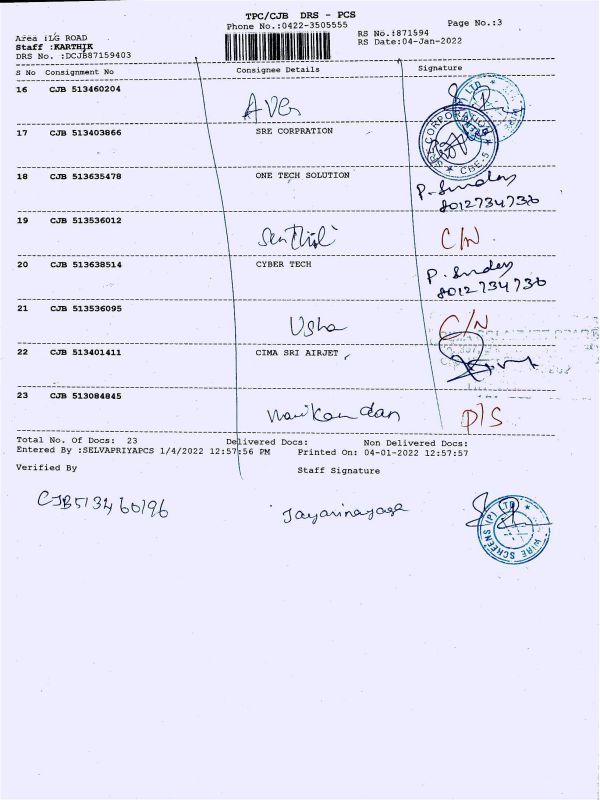 TPC/CJB DRS - PCS
Phone No.:0422-3505555
Page No.:3
Area :LG ROAD
RS No.:871594
Staff :KARTHIK
RS Date:04-Jan-2022
DRS No. :DCJB87159403
S No Consignment No Consignee Details Signature
16 CJB 513460204
AVen
17 CJB 513403866 SRE CORPRATION
SRE CORPORATION ★ CBE-5 ★
18 CJB 513635478 ONE TECH SOLUTION
P. Sundar
8012734736
19 CJB 513536012
Senthil C/N
20 CJB 513638514 CYBER TECH
P. Sundar
8012734736
21 CJB 513536095
Usha C/N
22 CJB 513401411 CIMA SRI AIRJET
23 CJB 513084845
Manikandan D/S
Total No. Of Docs: 23 Delivered Docs: Non Delivered Docs:
Entered By :SELVAPRIYAPCS 1/4/2022 12:57:56 PM Printed On: 04-01-2022 12:57:57
Verified By Staff Signature
CJB513460196 Jayavinayaga
WIRE SCREENS (P) LTD